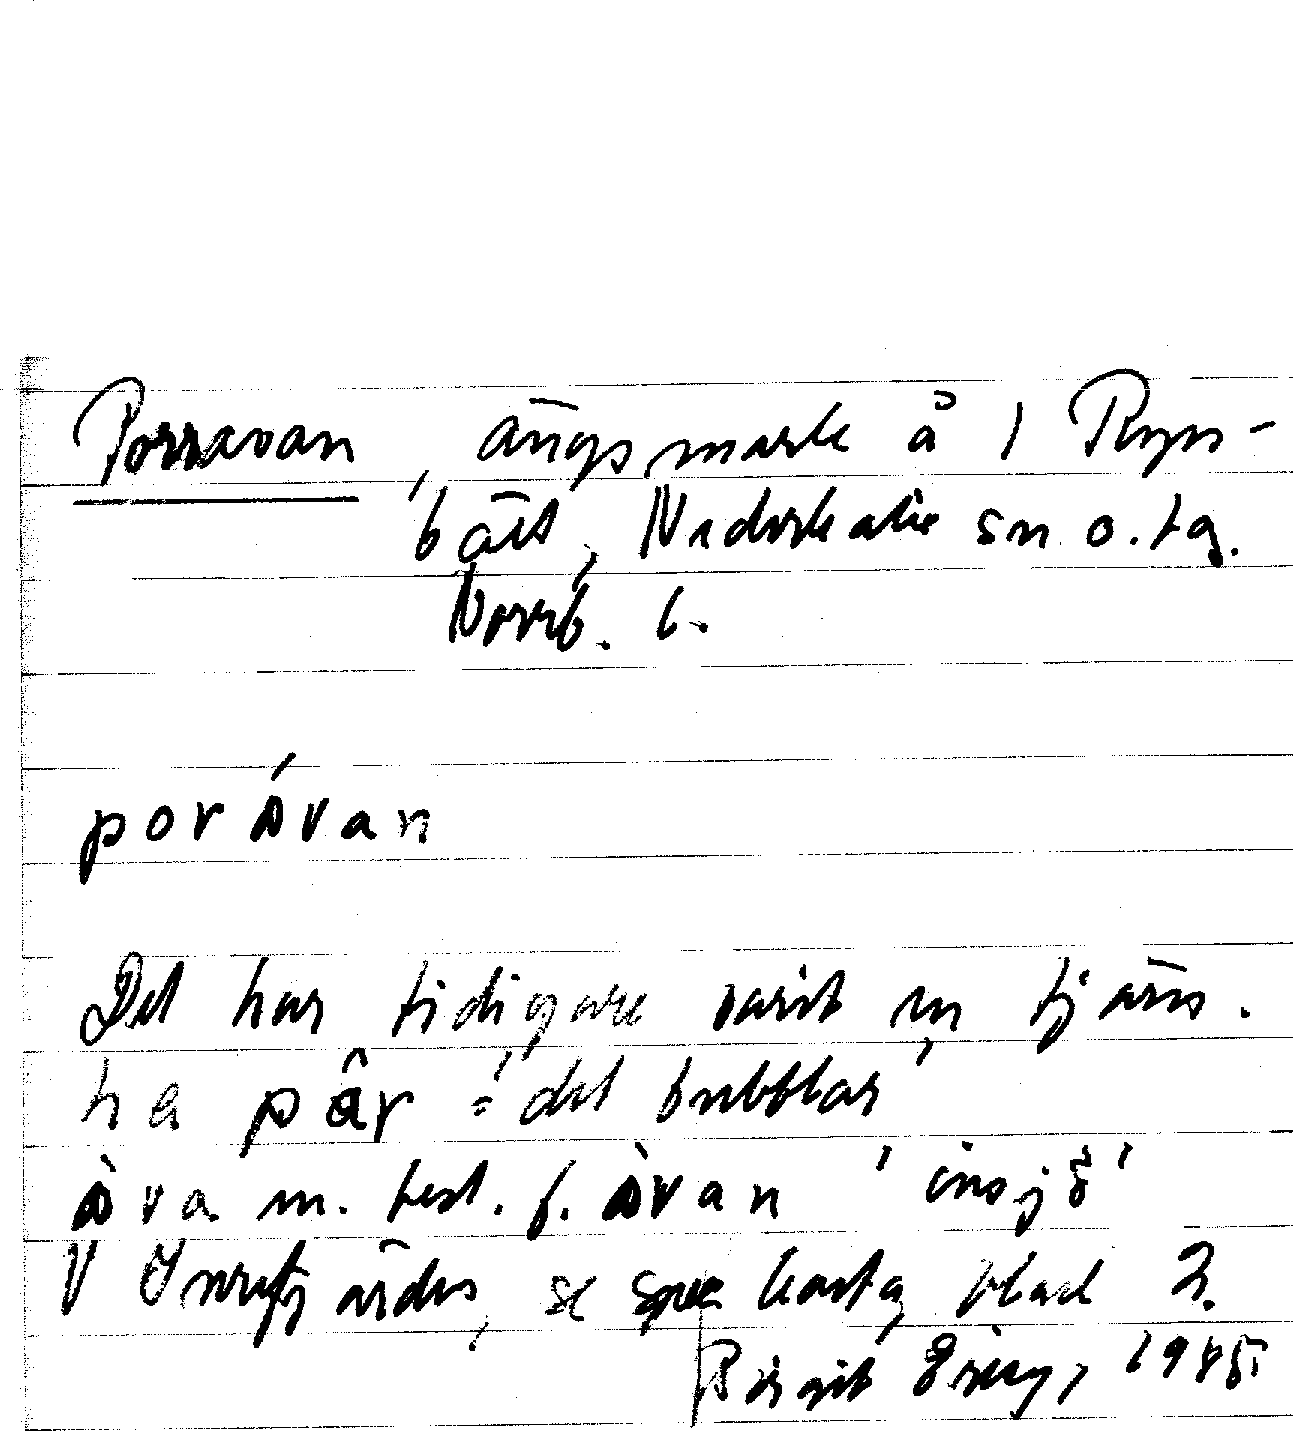 Porravan, ängsmark å 1 Ryss-
bält, Nederkalix sn o. tg.
Norrb. l.
poràvan
Det har tidigare varit en tjärn.
ha pâr = 'det bubblar'
àva m. best. f. àvan 'insjö'
V Inrefjärden, se spec karta, blad 2.
Birgit Ering, 1985